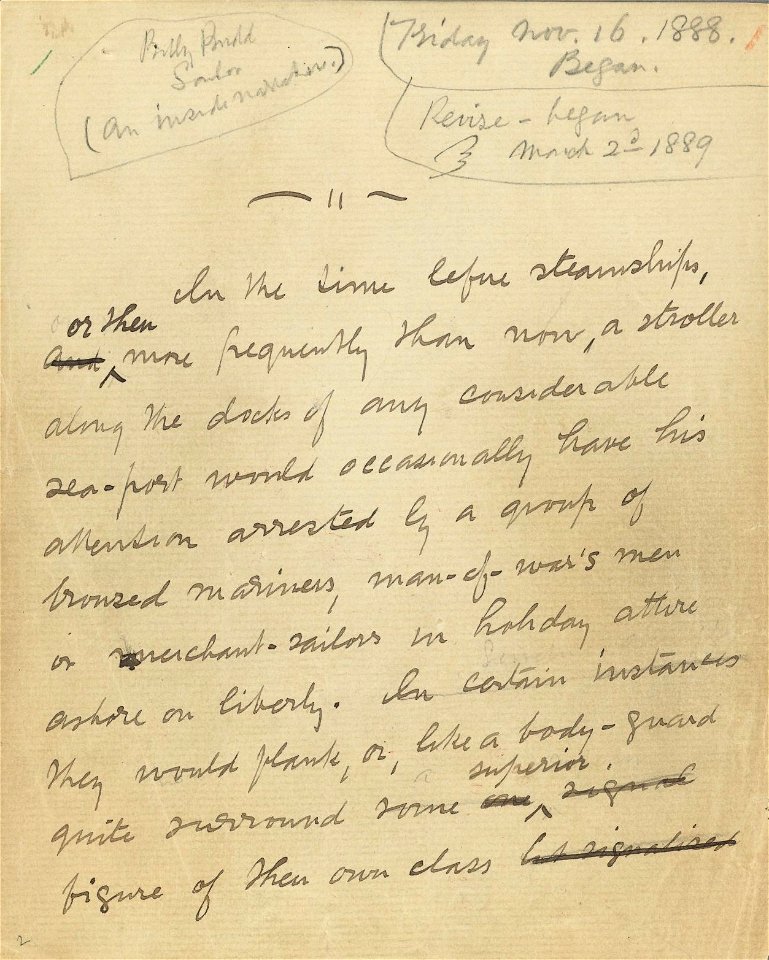 Billy Budd
Sailor
(An inside narrative.)
Friday Nov. 16. 1888.
Began.
Revise – began
March 2d 1889
In the time before steamships,
or then
and more frequently than now, a stroller
along the docks of any considerable
sea-port would occasionally have his
attention arrested by a group of
bronzed mariners, man-of-war's men
or merchant-sailors in holiday attire
ashore on liberty. In certain instances
they would flank, or, like a body-guard
superior
quite surround some one signal
figure of their own class
2